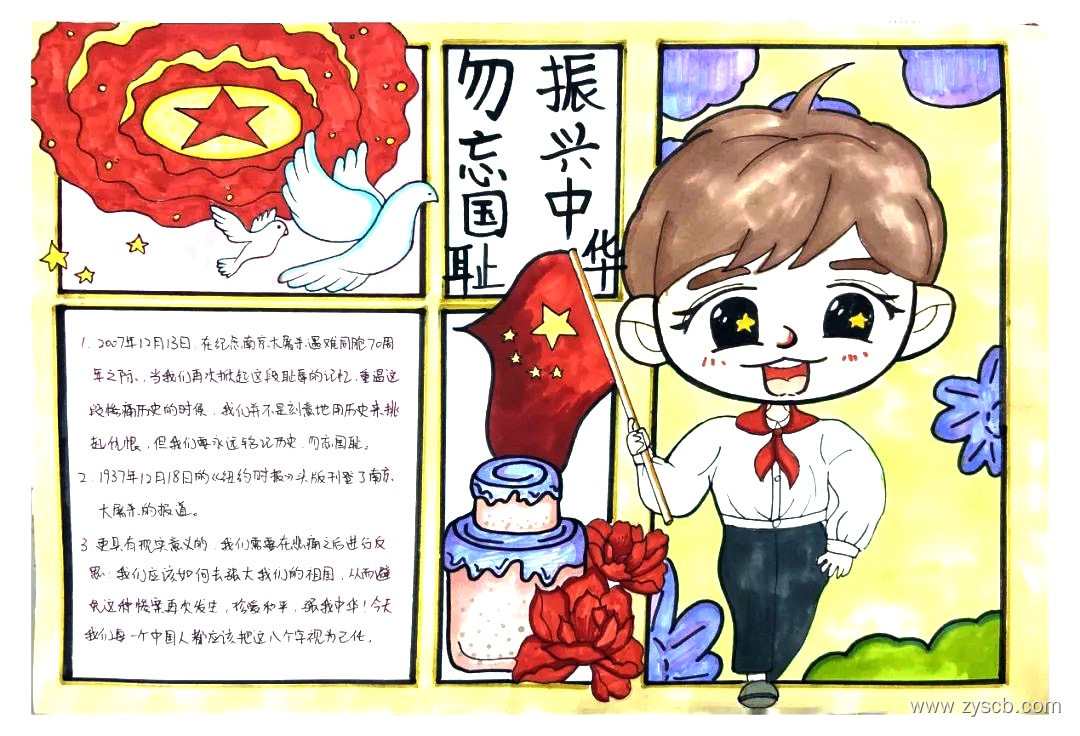 勿忘国耻
振兴中华
1. 2007年12月13日，在纪念南京大屠杀遇难同胞70周
年之际，当我们再次掀起这段耻辱的记忆，重温这
段惨痛历史的时候，我们并不是刻意地用历史来挑
起仇恨，但我们要永远铭记历史，勿忘国耻。
2. 1937年12月18日的《纽约时报》头版刊登了南京
大屠杀的报道。
3 更具有现实意义的，我们需要在悲痛之后进行反
思：我们应该如何去强大我们的祖国，从而避
免这种惨案再次发生，核爱和平，振我中华！今天
我们每一个中国人都应该把这八个字视为己任。
www.zyscb.com